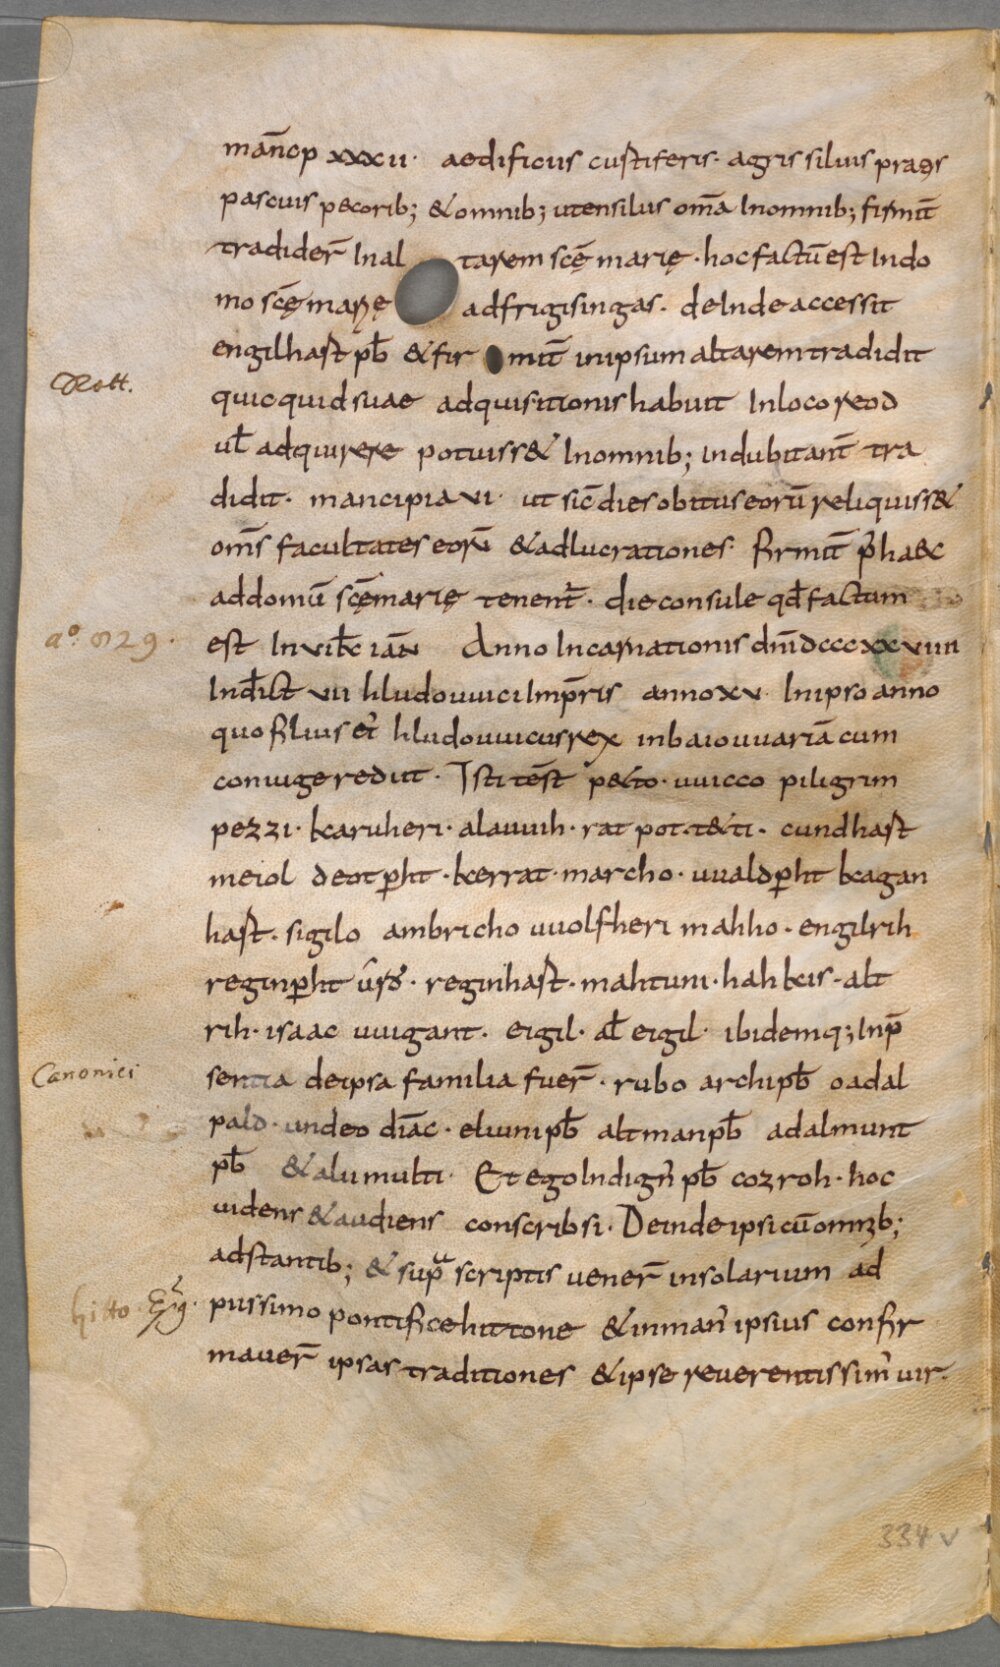 man̄cp xxxii· aedificiis custiferis· agris siluis pratis
pascuis pecorib; & omnib; utensiliis om̄a Inomnib; firmit̄
tradider̄ Inal tarem scę̄ marię · hoc factū est Indo
mo scę̄ marię ad frigisingas· deInde accessit
engilhast pb̄ & fir mit̄ inipsum altarem tradidit
Rott.
quicquid suae adquisitionis habuit Inloco reod
ul̄ adquirere potuiss& Inomnib; indubitant̄ tra
didit· mancipia vi· ut sic̄ dies obitus eorū reliquiss&
om̄s facultates eorū & adlucrationes· firmit̄ p̄ haec
ad domū scę̄ marię tenent̄· die consule qd̄ factum
aº 829·
est In vi kl̄ ian̄ Anno Incarnationis dn̄i dccc xx viiii
Indict̄ vii hludouuici Imp̄ris anno xv· In ipso anno
quo filius ei' hludouuicus rex in baiouuariā cum
coniuge rediit· Isti test̄ p&to· uuicco piligrim
pezzi· karuheri· alauuih· rat pot· t&ti· cundhast
meiol deotp̄ht· kerrat· marcho· uualdp̄ht kagan
hast· sigilo ambricho uuolfheri mahho· engilrih
reginp̄ht · reginhast· mahtuni· hahkis· alt
rih· isaac uuigant· eigil· al̄ eigil· ibidemq; Inp̄
Canonici
sentia deipsa familia fuer̄· rubo archipb̄ oadal
pald· undeo diāc· eliuni pb̄ altman pb̄ adalmunt
pb̄ & alii multi· Et ego Indign' pb̄ cozroh· hoc
uidens & audiens conscribsi· Deinde ipsi cū omnib;
adstantib; & sup̄ scriptis uener̄ insolarium ad
hitto Ep̄s·
piissimo pontifice hittone & inman' ipsius confir
mauer̄ ipsas traditiones & ipse reuerentissim' uir·
334 v